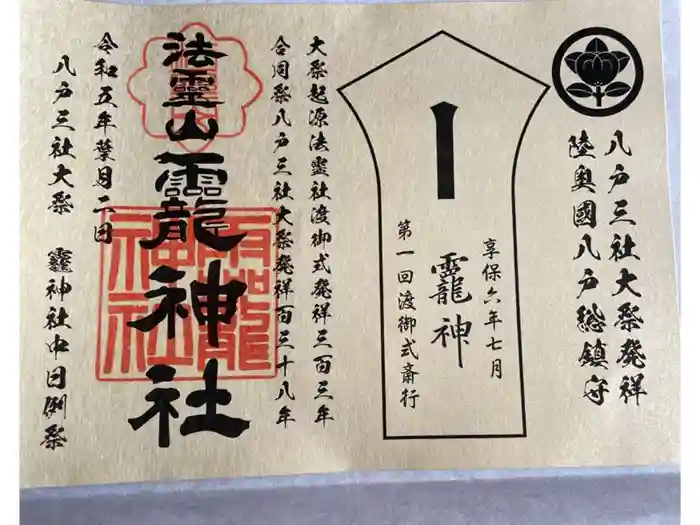 八戸三社大祭発祥
陸奥國八戸総鎮守
享保六年七月
龗神
第一回渡御式斎行
大祭起源法霊社渡御式発祥三百三年
合同祭八戸三社大祭発祥百三十八年
法霊山龗神社
令和五年葉月二日
八戸三社大祭 龗神社中日例祭